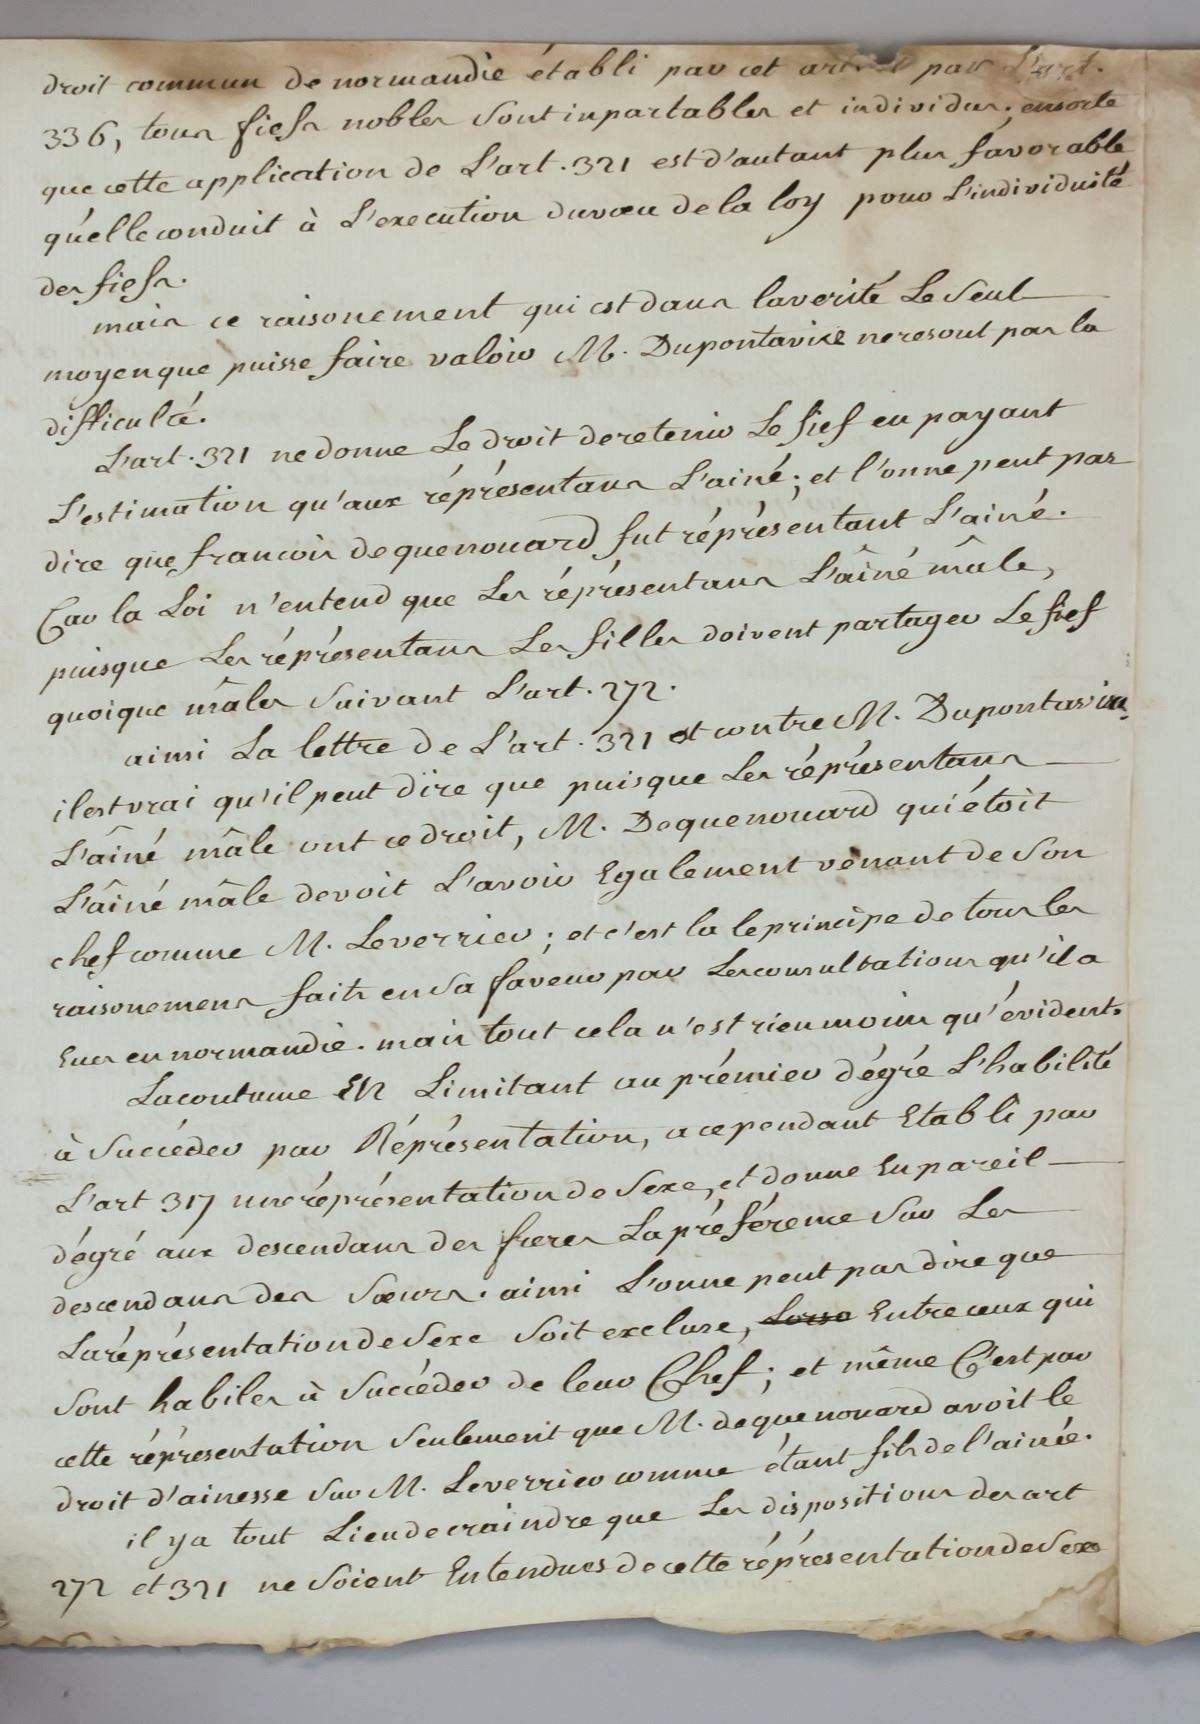 droit commun de normandie établi par cet article par L'art.
336, tous fiefs nobles sont inpartables et individus; ensorte
que cette application de L'art. 321 est d'autant plus favorable
qu'elle conduit à L'execution du vœu de la loy pour L'individuité
des fiefs.
mais ce raisonement qui est dans la verité Le seul
moyen que puisse faire valoir M. Dupontavice ne resout pas la
difficulté.
L'art. 321 ne donne Le droit de retenir Le fief en payant
L'estimation qu'aux réprésentans L'ainé; et l'on ne peut pas
dire que francois dequenouard fut réprésentant L'ainé.
Car la Loi n'entend que Les réprésentans L'âiné mâle,
puisque Les réprésentans Les filles doivent partager Le fief
quoique mâles suivant L'art. 272.
ainsi La lettre de L'art. 321 est contre M. Dupontavice
il est vrai qu'il peut dire que puisque Les réprésentans
L'âiné mâle ont ce droit, M. Dequenouard qui étoit
L'âiné mâle devoit L'avoir Egalement venant de son
chef comme M. Leverrier; et c'est la le principe de tous les
raisonemens faits en sa faveur par Les consultations qu'il a
Eues en normandie. mais tout cela n'est rien moins qu'évident.
La coutume EN Limitant au prémier dégré L'habilité
à succéder par Réprésentation, a cependant Etabli par
L'art 317 une réprésentation de sexe, et donne En pareil
dégré aux descendans des freres La préférence sur Les
descendans des sœurs. ainsi L'on ne peut pas dire que
La réprésentation de sexe soit excluse, Lorse Entre ceux qui
sont habiles à succéder de leur Chef; et même C'est par
cette réprésentation seulement que M. dequenouard avoit le
droit d'ainesse sur M. Leverrier comme étant fils de l'ainée.
il y a tout Lieu de craindre que Les dispositions des art
272 et 321 ne soient Entendues de cette réprésentation de sexe